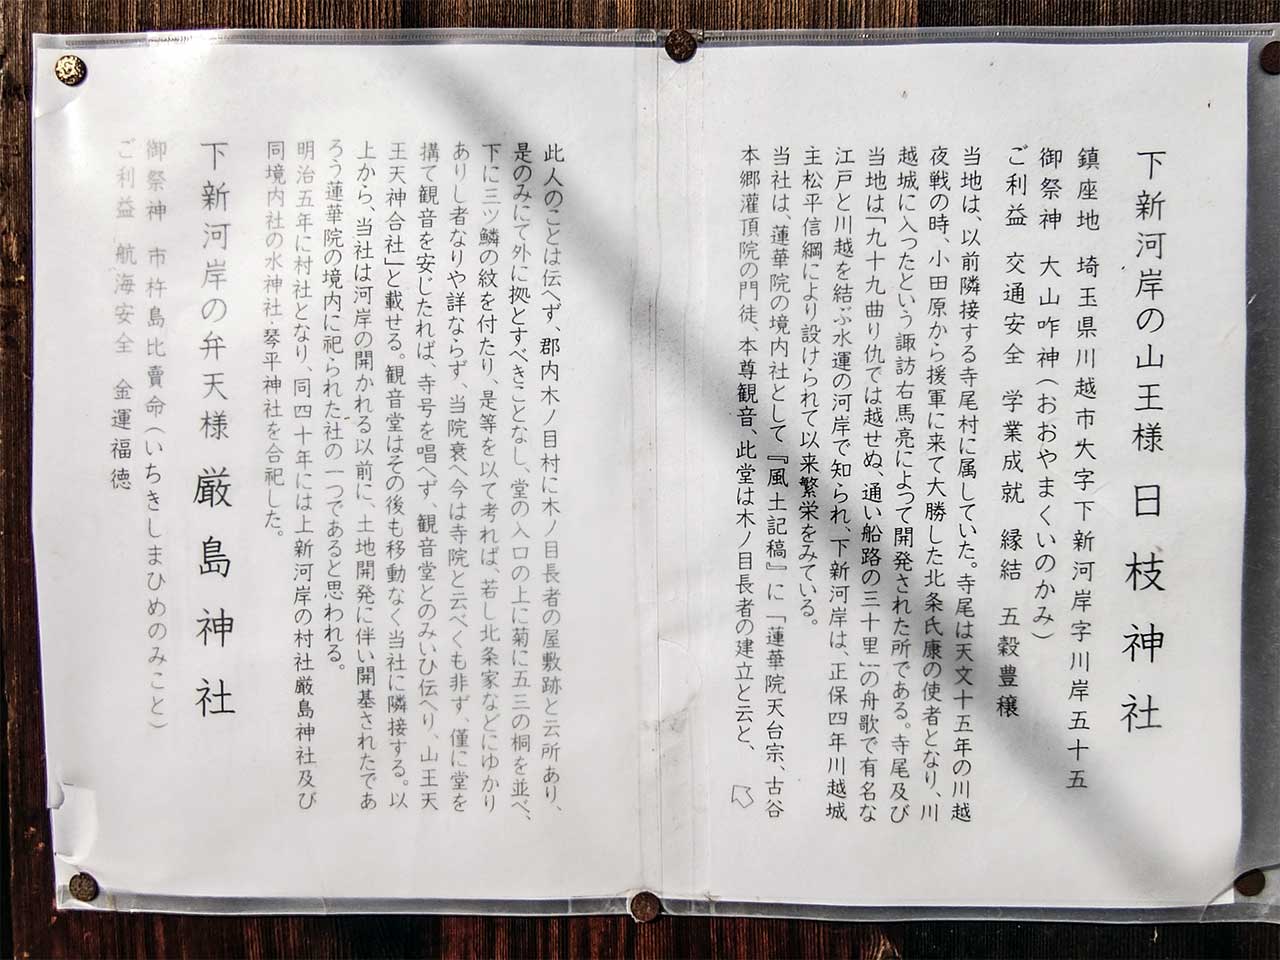 下新河岸の山王様 日枝神社
鎮座地 埼玉県川越市大字下新河岸字川岸五十五
御祭神 大山咋神（おおやまくいのかみ）
ご利益 交通安全 学業成就 縁結 五穀豊穣
当地は、以前隣接する寺尾村に属していた。寺尾は天文十五年の川越
夜戦の時、小田原から援軍に来て大勝した北条氏康の使者となり、川
越城に入ったという諏訪右馬亮によって開発された所である。寺尾及び
当地は「九十九曲り仇では越せぬ、通い船路の三十里」の舟歌で有名な
江戸と川越を結ぶ水運の河岸で知られ、下新河岸は、正保四年川越城
主松平信綱により設けられて以来繁栄をみている。
当社は、蓮華院の境内社として『風土記稿』に「蓮華院天台宗、古谷
本郷灌頂院の門徒、本尊観音、此堂は木ノ目長者の建立と云と、
此人のことは伝へず、郡内木ノ目村に木ノ目長者の屋敷跡と云所あり、
是のみにて外に拠とすべきことなし、堂の入口の上に菊に五三の桐を並べ、
下に三ツ鱗の紋を付たり、是等を以て考れば、若し北条家などにゆかり
ありし者なりや詳ならず、当院衰へ今は寺院と云べくも非ず、僅に堂を
構て観音を安じたれば、寺号を唱へず、観音堂とのみいひ伝へり、山王天
王天神合社」と載せる。観音堂はその後も移動なく当社に隣接する。以
上から、当社は河岸の開かれる以前に、土地開発に伴い開基されたであ
ろう蓮華院の境内に祀られた社の一つであると思われる。
明治五年に村社となり、同四十年には上新河岸の村社厳島神社及び
同境内社の水神社・琴平神社を合祀した。
下新河岸の弁天様 厳島神社
御祭神 市杵島比賣命（いちきしまひめのみこと）
ご利益 航海安全 金運福徳